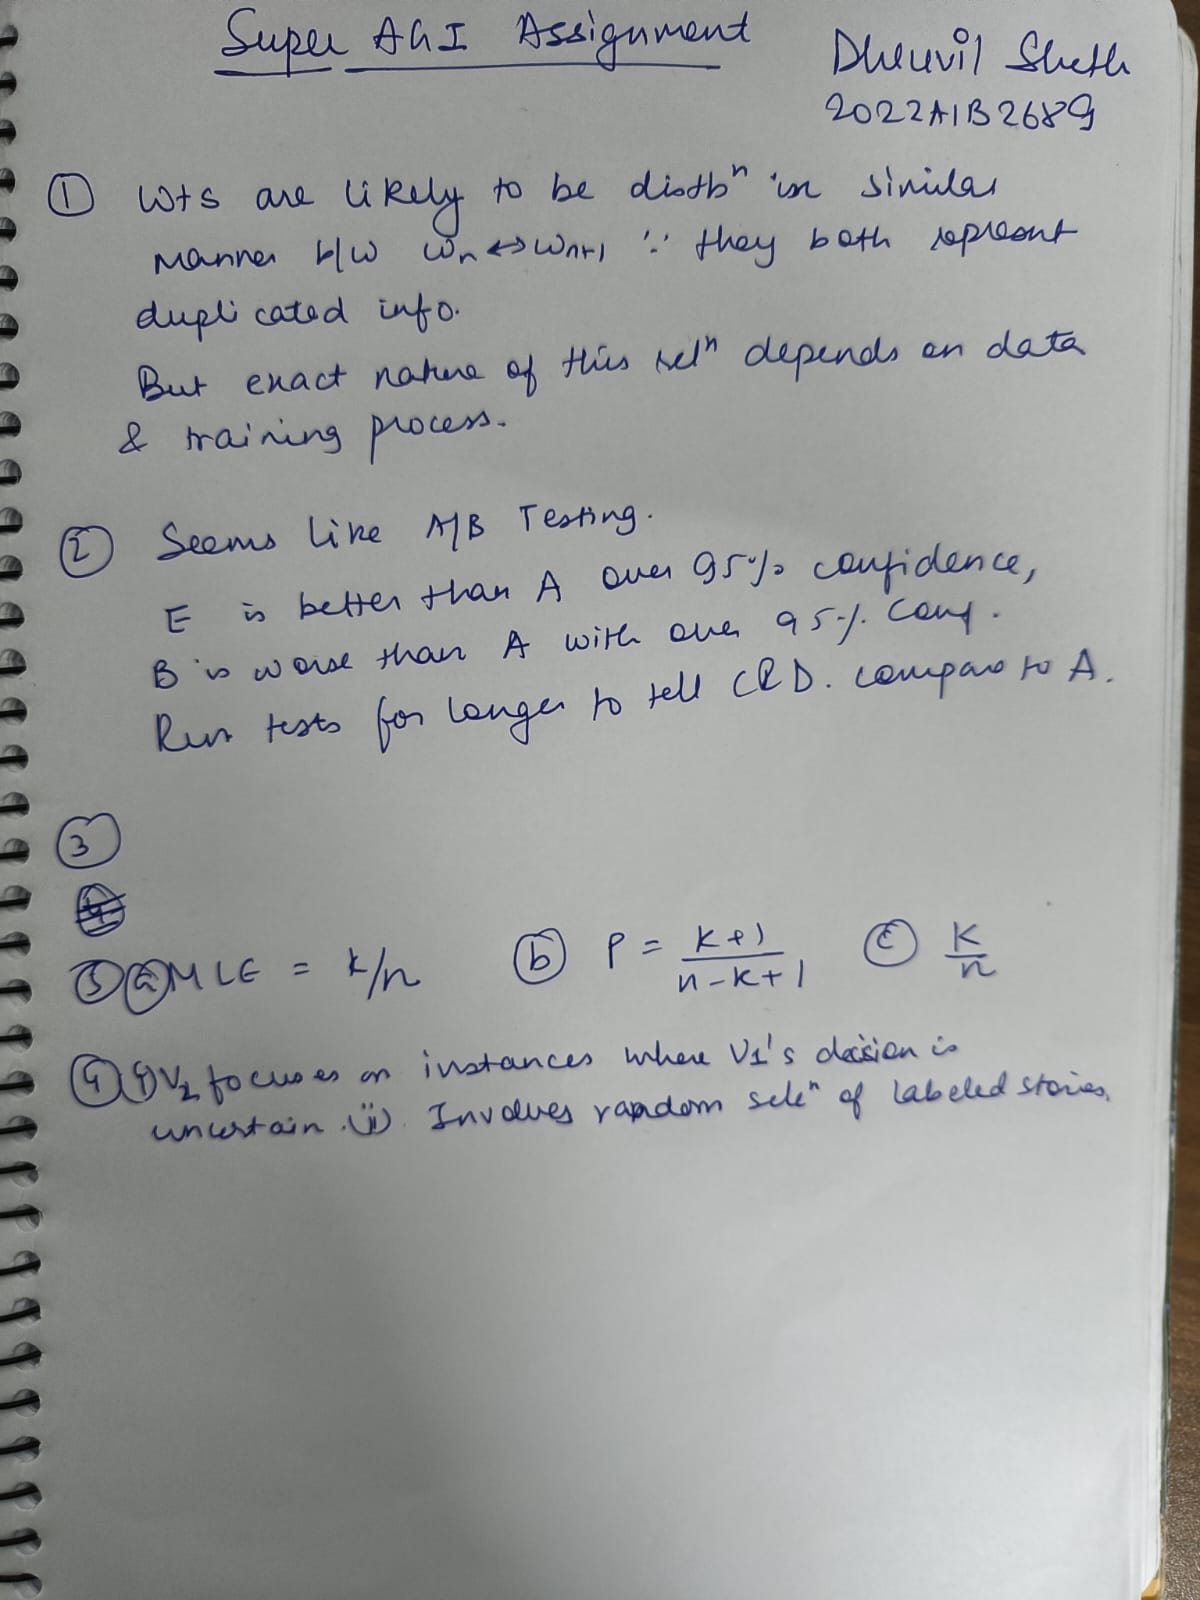 Super AGI Assignment
Dhruvil Sheth
2022A1B2689
① Wts are likely to be distbⁿ in similar
manner b/w Wn ↔ Wn+1 ∵ they both represent
duplicated info.
But exact nature of this relⁿ depends on data
& training process.
② Seems like A/B Testing.
E is better than A over 95% confidence,
B is worse than A with over 95% conf.
Run tests for longer to tell C & D. compare to A.
③
⑤ ⓐ MLE = k/n ⓑ P = k+1 / n-k+1 ⓒ K/n
④ i) V2 focuses on instances where V1's decision is
uncertain. ii). Involves random selⁿ of labeled stories.